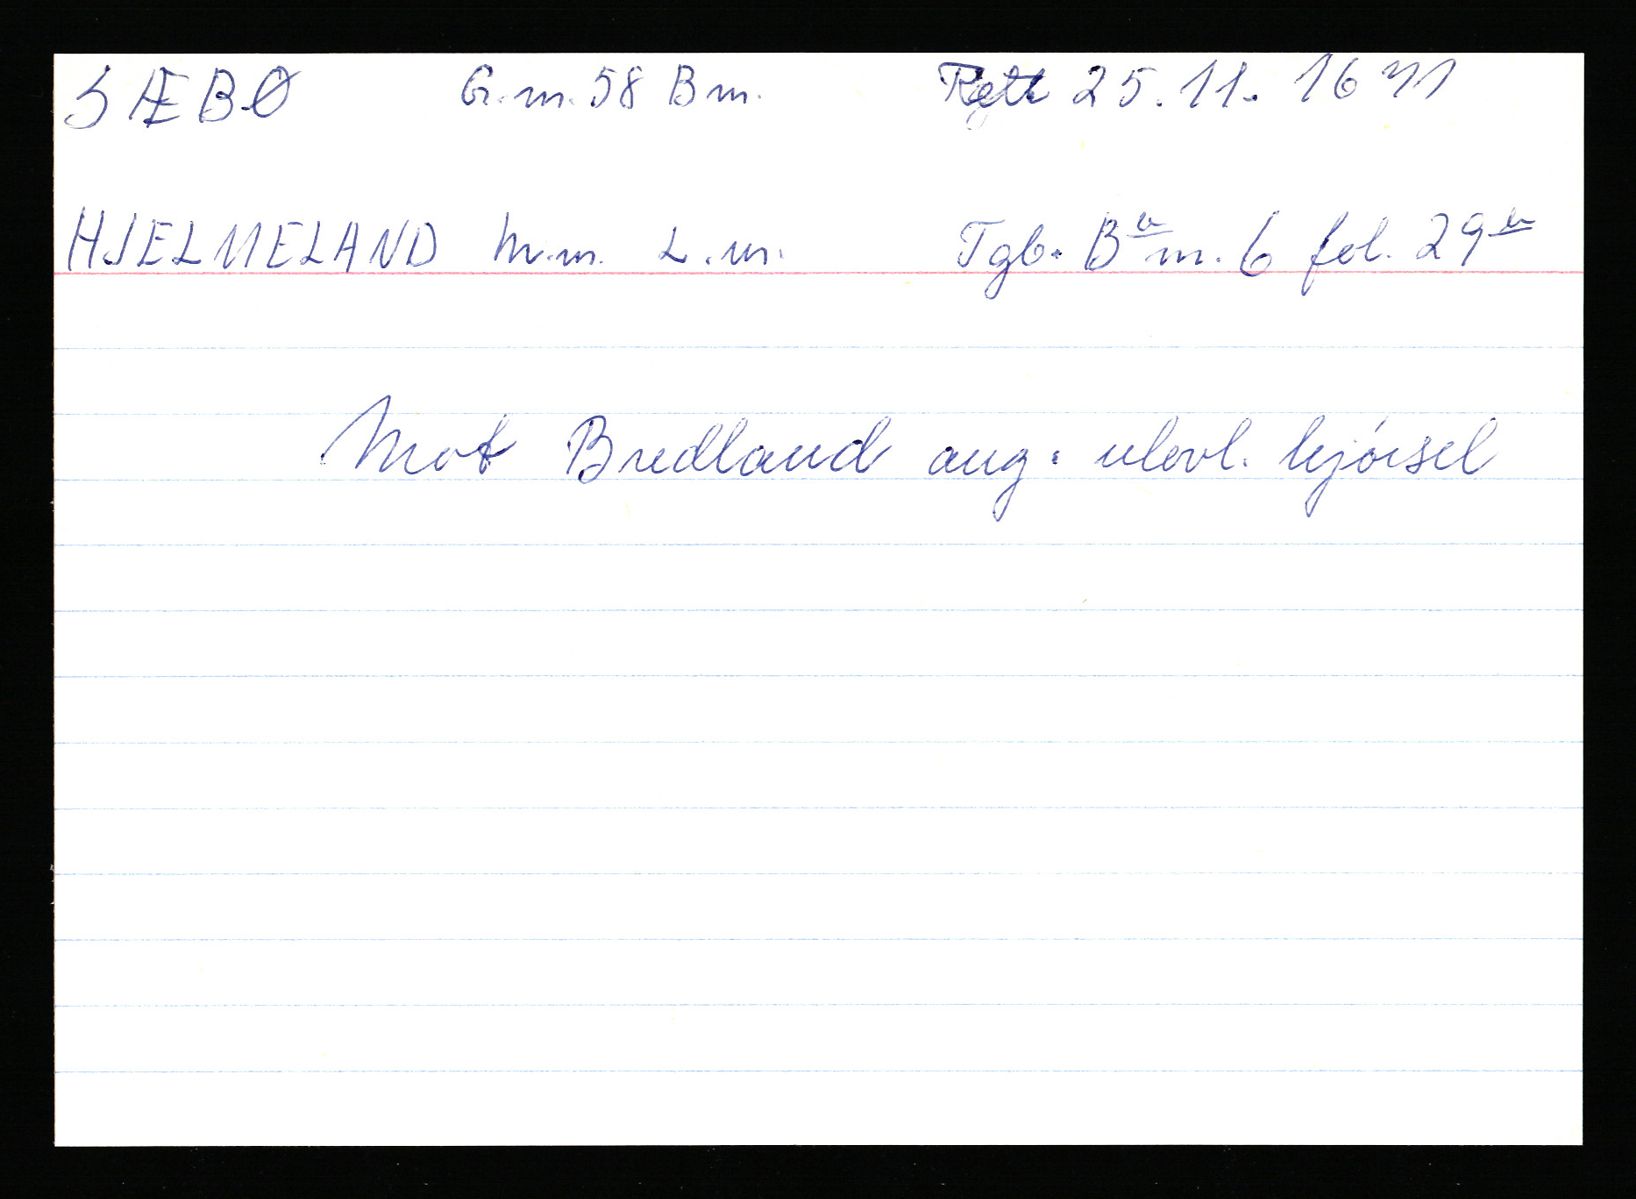 SÆBØ G.nr. 58 B nr. Rett 25.11. 1671
HJELMELAND M.nr. L.nr. Tgb. B a nr. 6 fol. 29 b
Mot Bredland ang. ulovl. kjørsel